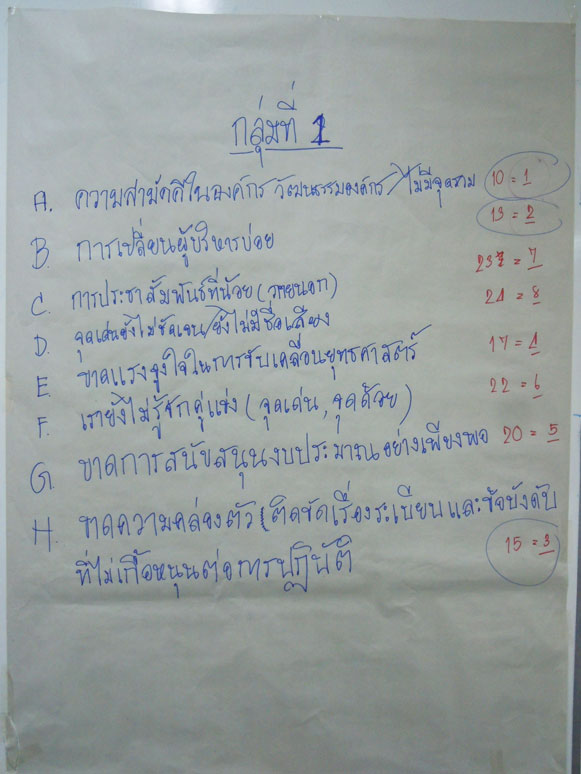 กลุ่มที่ 1
A. ความสามัคคีในองค์กร วัฒนธรรมองค์กร/ไม่มีจุดร่วม 10 = 1
13 = 2
B. การเปลี่ยนผู้บริหารบ่อย
237 = 7
C. การประชาสัมพันธ์ที่น้อย (ภายนอก) 21 = 8
D. จุดเด่นยังไม่ชัดเจน/ยังไม่มีชื่อเสียง
E. ขาดแรงจูงใจในการขับเคลื่อนยุทธศาสตร์ 17 = 4
F. เรายังไม่รู้จักคู่แข่ง (จุดเด่น, จุดด้อย) 22 = 6
G. ขาดการสนับสนุนงบประมาณอย่างเพียงพอ 20 = 5
H. ขาดความคล่องตัว (ติดขัดเรื่องระเบียบและข้อบังคับ
ที่ไม่เกื้อหนุนต่อการปฏิบัติ 15 = 3